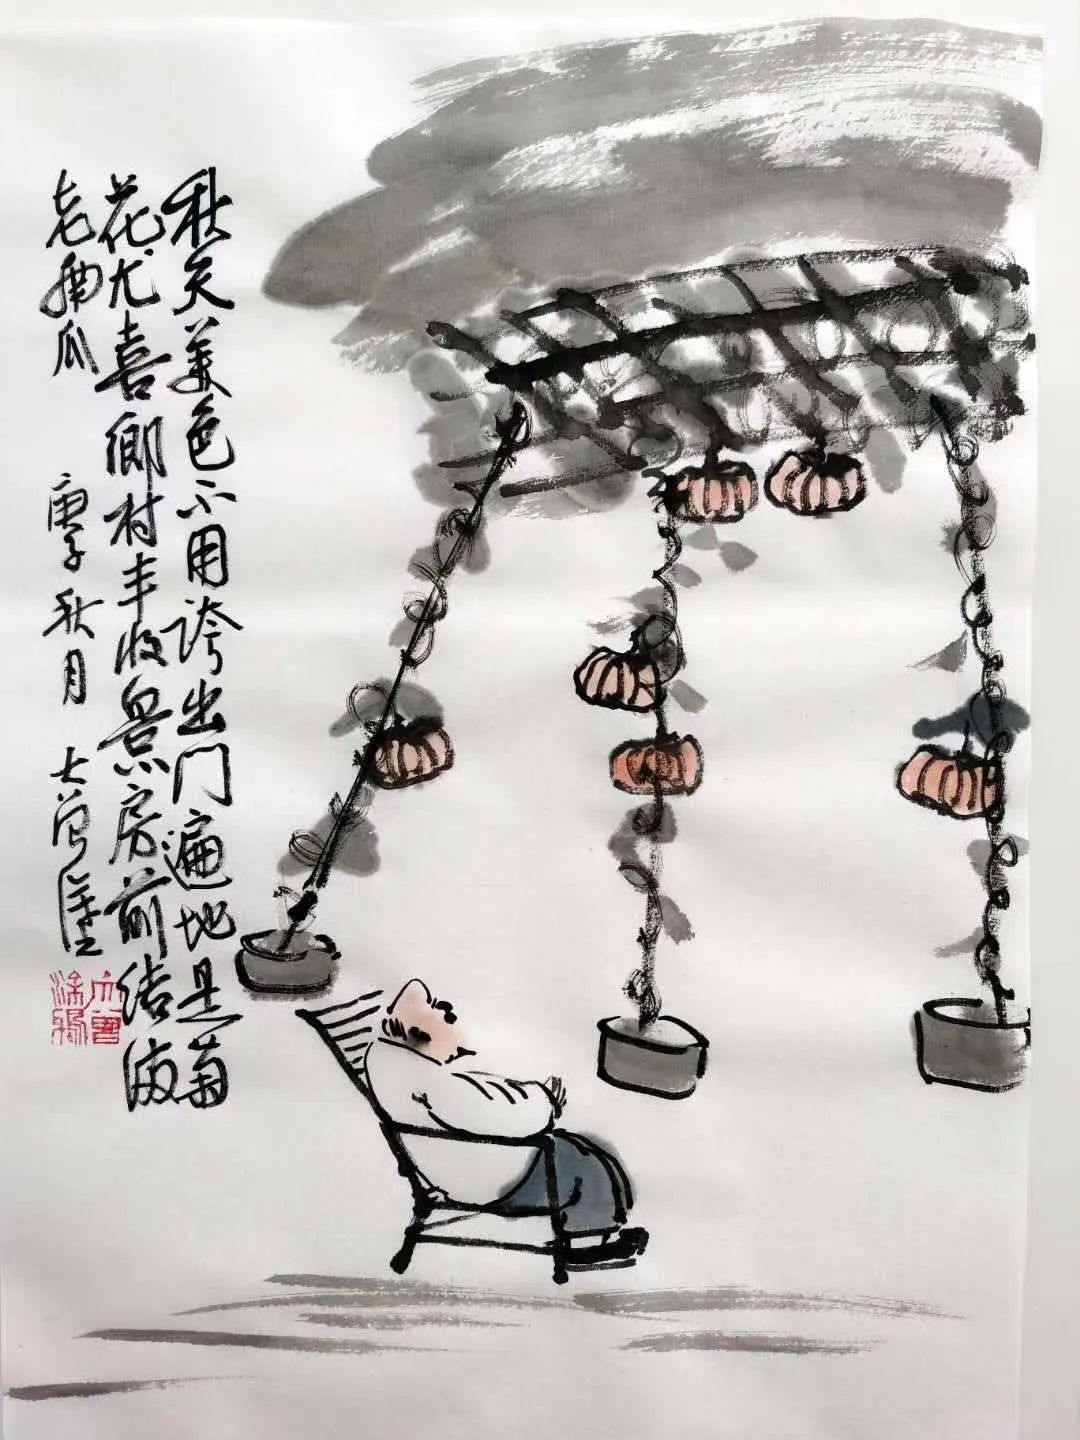 秋天美色不用誇出门遍地是菊
花尤喜鄉村丰收景房前结滿
老南瓜
庚子秋月